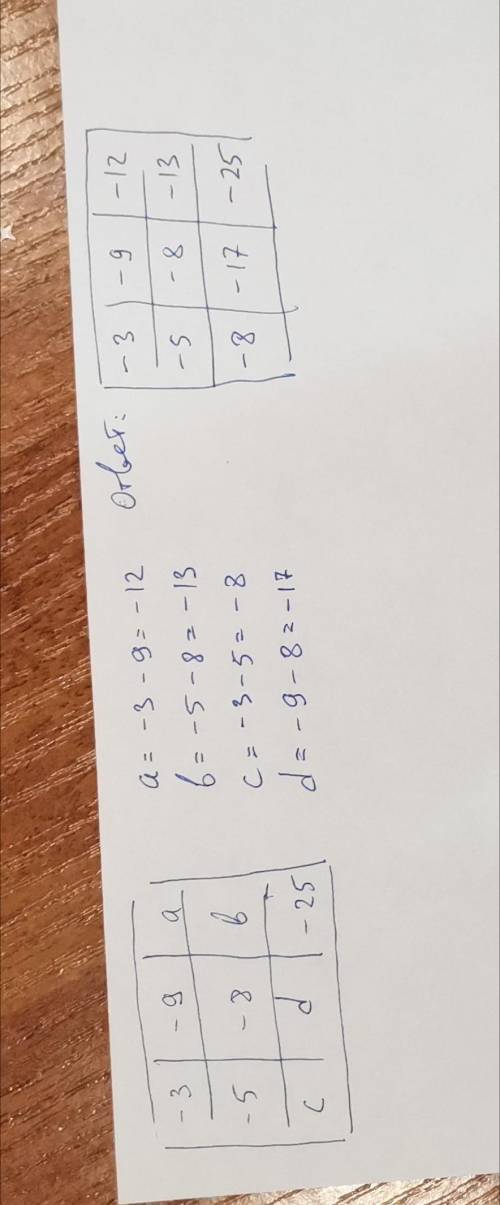 -3 -9 a
-5 -8 b
c d -25
a = -3 - 9 = -12
b = -5 - 8 = -13
c = -3 - 5 = -8
d = -9 - 8 = -17
Ответ:
-3 -9 -12
-5 -8 -13
-8 -17 -25